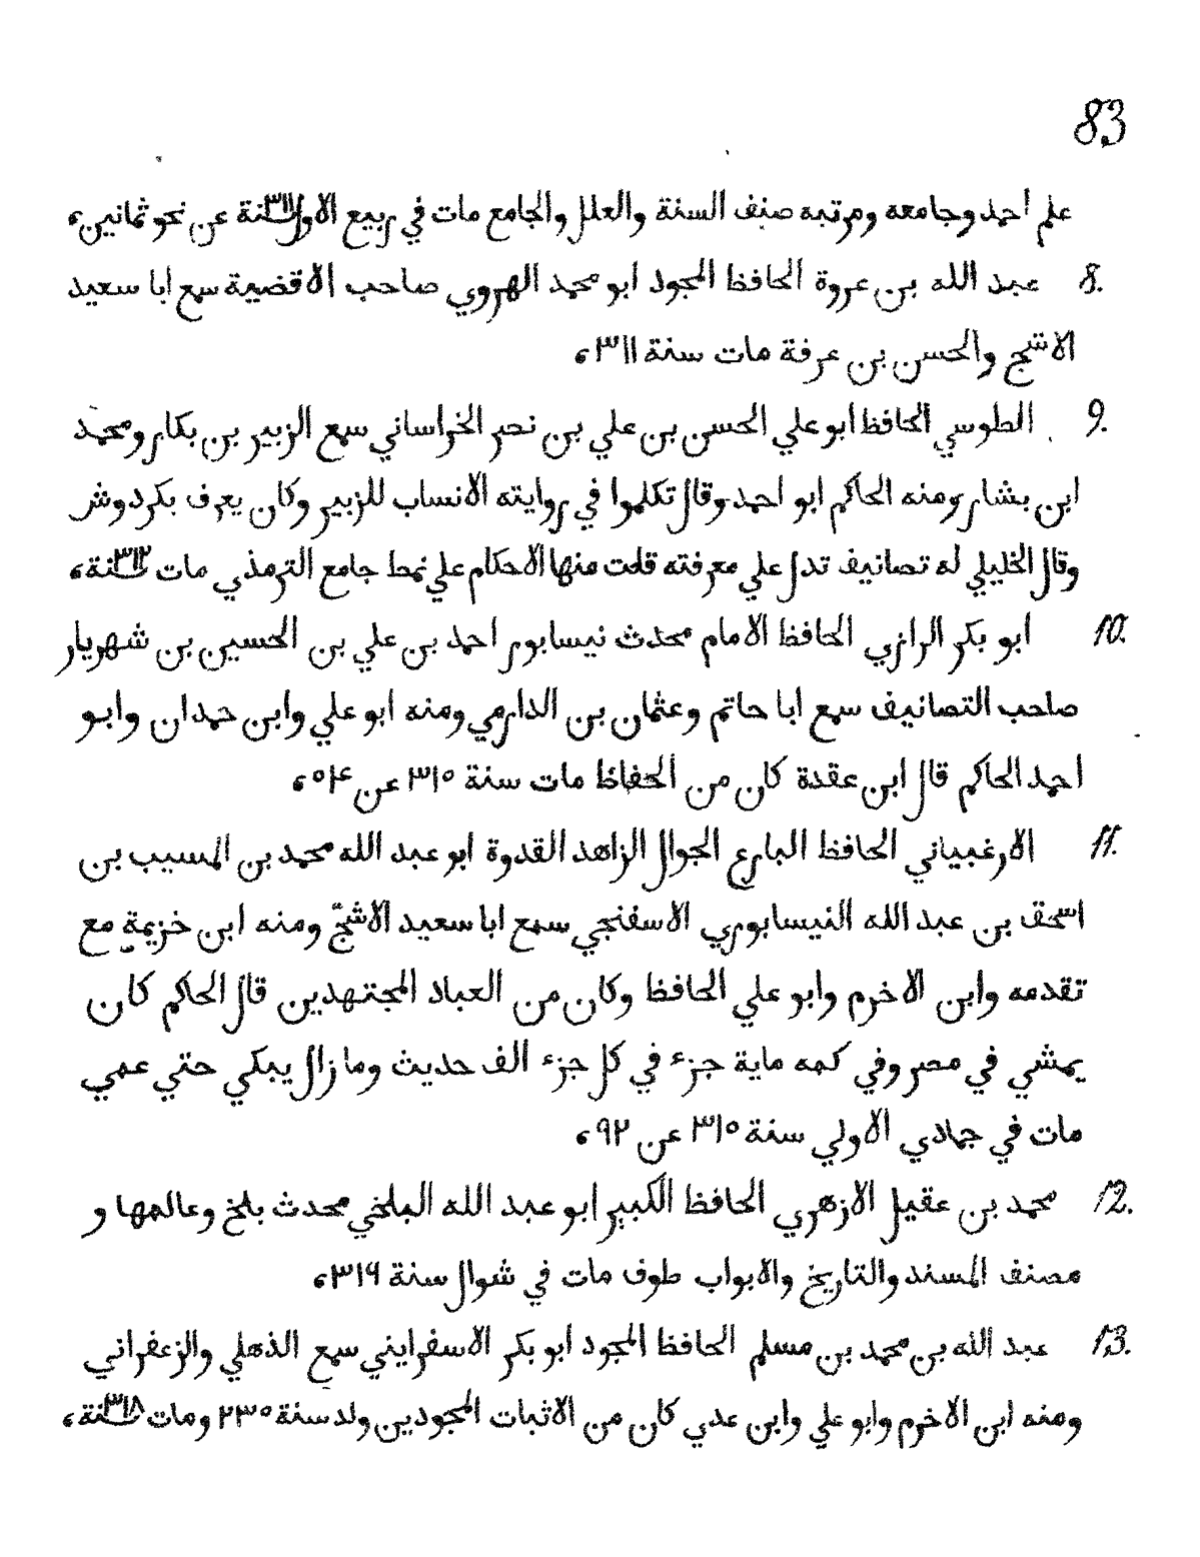 83
علم احمد وجامعه ومرتبه صنف السنة والعلل والجامع مات في ربيع الاول سنة ٣١١ عن نحو ثمانين،
8. عبد الله بن عروة الحافظ المجود ابو محمد الهروي صاحب الاقضية سمع ابا سعيد
الاشج والحسن بن عرفة مات سنة ٣١١،
9. الطوسي الحافظ ابو علي الحسن بن علي بن نصر الخراساني سمع الزبير بن بكار ومحمد
ابن بشار ومنه الحاكم ابو احمد وقال تكلموا في روايته الانساب للزبير وكان يعرف بكردوش
وقال الخليلي له تصانيف تدل علي معرفته قلت منها الاحكام علي نمط جامع الترمذي مات سنة ٣١٢،
10. ابو بكر الرازي الحافظ الامام محدث نيسابور احمد بن علي بن الحسين بن شهريار
صاحب التصانيف سمع ابا حاتم وعثمان بن الدارمي ومنه ابو علي وابن حمدان وابو
احمد الحاكم قال ابن عقدة كان من الحفاظ مات سنة ٣١٥ عن ٥٤،
11. الارغبياني الحافظ البارع الجوال الزاهد القدوة ابو عبد الله محمد بن المسيب بن
اسحق بن عبد الله النيسابوري الاسفنجي سمع ابا سعيد الاشجّ ومنه ابن خزيمة مع
تقدمه وابن الاخرم وابو علي الحافظ وكان من العباد المجتهدين قال الحاكم كان
يمشي في مصر وفي كمه ماية جزء في كل جزء الف حديث وما زال يبكي حتي عمي
مات في جمادي الاولي سنة ٣١٥ عن ٩٢،
12. محمد بن عقيل الازهري الحافظ الكبير ابو عبد الله البلخي محدث بلخ وعالمها و
مصنف المسند والتاريخ والابواب طوف مات في شوال سنة ٣١٦،
13. عبد الله بن محمد بن مسلم الحافظ المجود ابو بكر الاسفرايني سمع الذهلي والزعفراني
ومنه ابن الاخرم وابو علي وابن عدي كان من الاثبات المجودين ولد سنة ٢٣٥ ومات سنة ٣١٨،